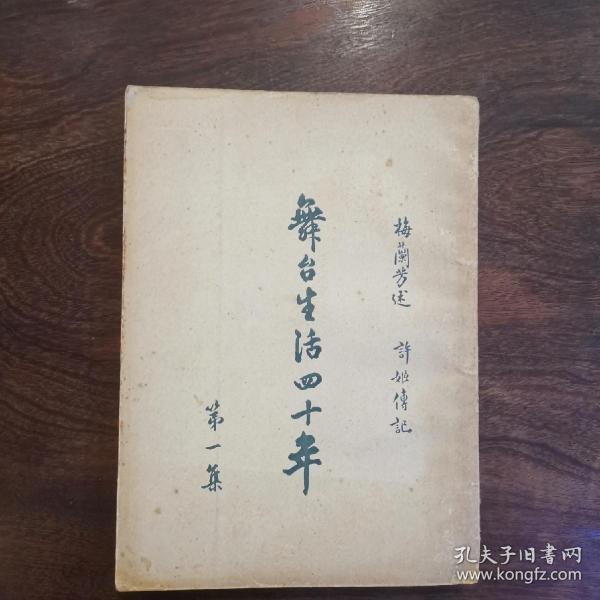 梅蘭芳述 許姬傳記
舞台生活四十年
第一集
孔夫子旧書网
www.kongfz.com